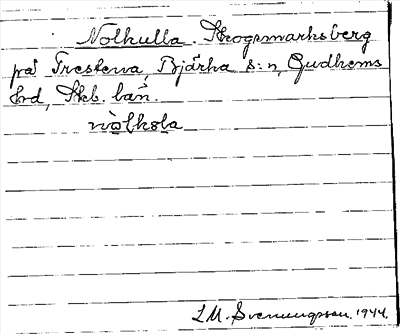 Nolkulla. Skogsmarksberg
på Trestena, Bjärka s:n, Gudhems
hd, Skb. län.
nòlkola
L.M. Svenungsson. 1944.